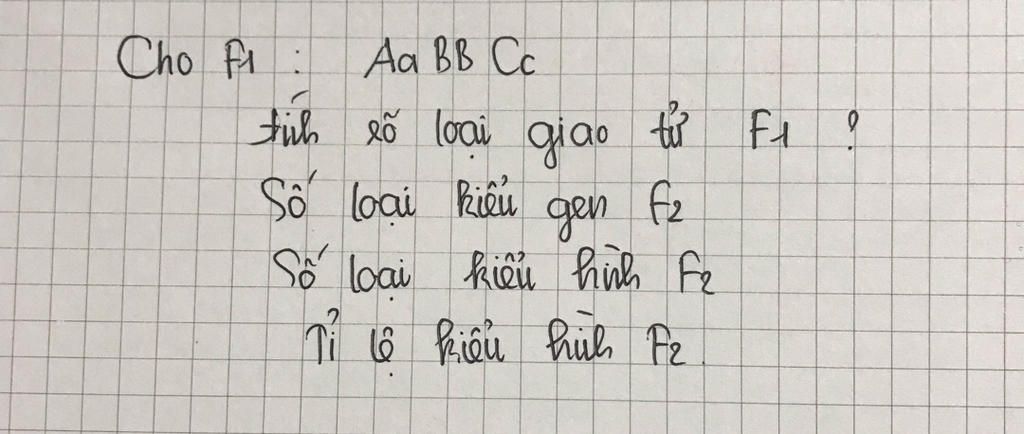 Cho F1 : AaBBCc
tính số loại giao tử F1 ?
Số loại kiểu gen F2
Số loại kiểu hình F2
Tỉ lệ kiểu hình F2.